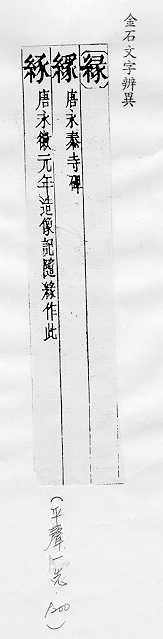 金石文字辨異
〔緣〕
唐永泰寺碑
唐永徽元年造像記隨緣作此
(平聲一先.